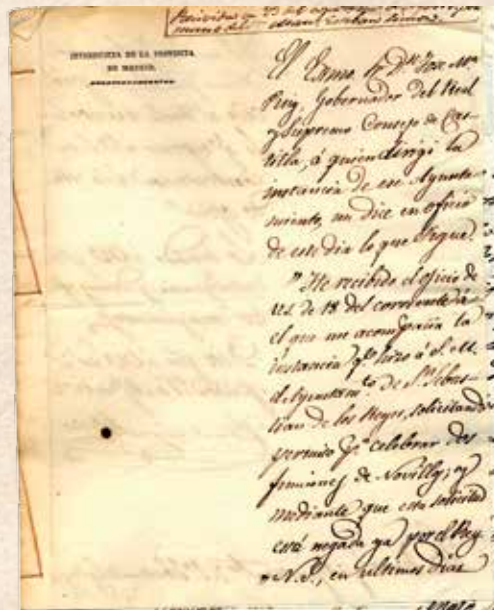 Recivido en 23 de agosto
INTENDENCIA DE LA PROVINCIA
DE MADRID.
El Exmo. Sr. Dn. Jose Ma.
Puig, Gobernador del Real
y Supremo Consejo de Cas-
tilla, á quien dirigí la
instancia de ese Ayunta-
miento, me dice en oficio
de este dia lo que sigue.
"He recibido el oficio de
V.S. de 18 del corriente á
el que me acompaña la
instancia qe. hizo á S.M.
el Ayuntamto. de Sn. Sebas-
tian de los Reyes, solicitando
permiso pa. celebrar dos
funciones de Novillos; y
mediante que esta solicitud
está negada ya por el Rey
N.S., en ultimos dias